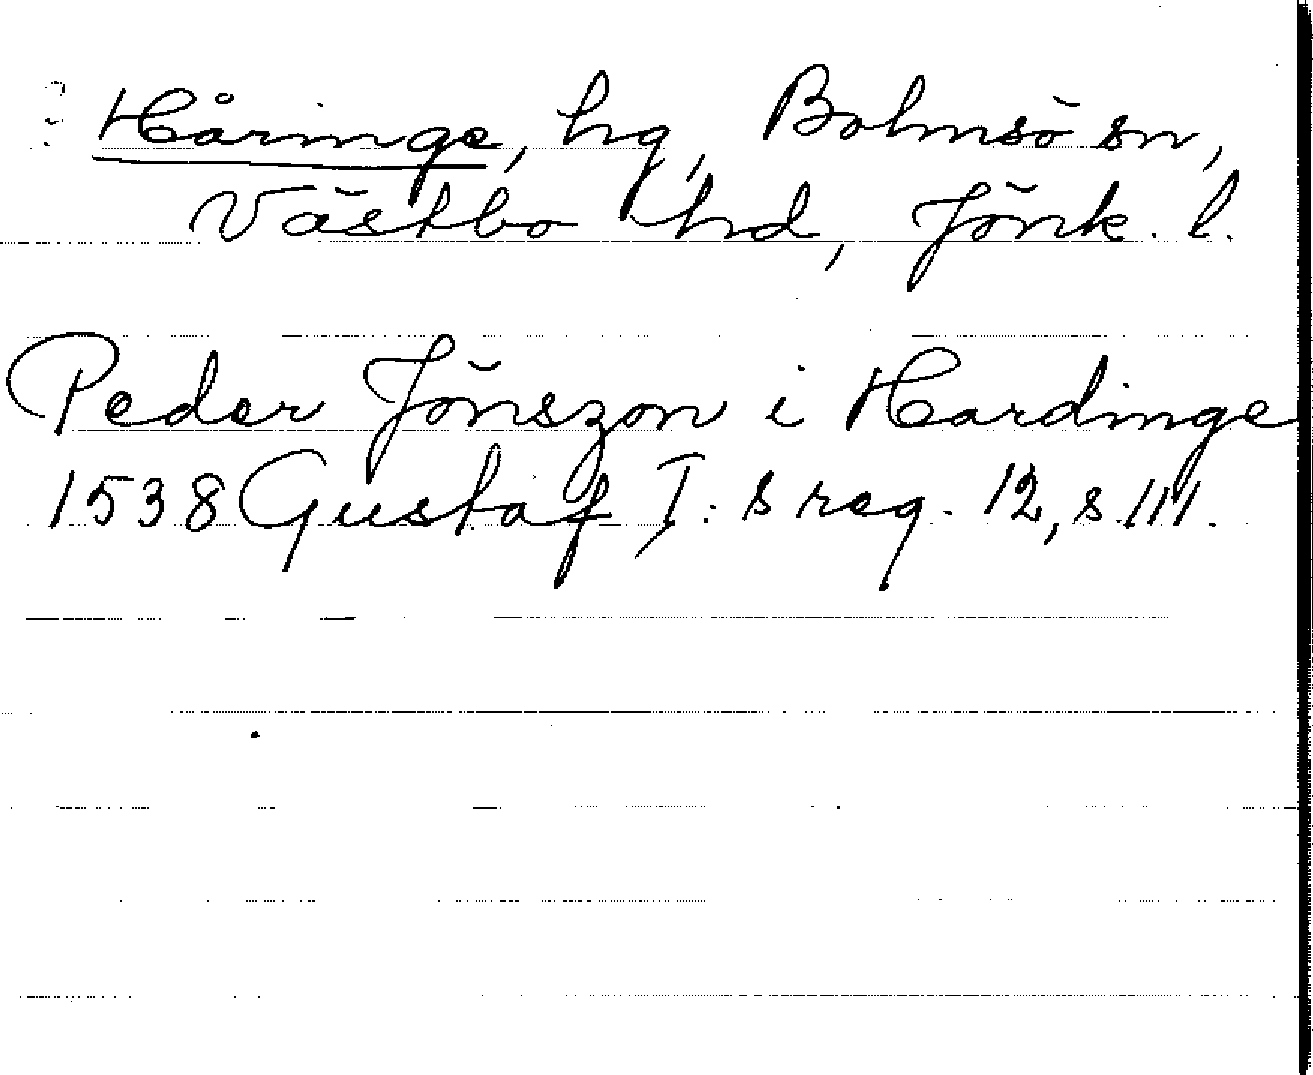 Håringe, hg, Bolmsö sn,
Västbo hd, Jönk. l.
Peder Jönszon i Hardinge
1538 Gustaf I: s reg. 12, s 111.